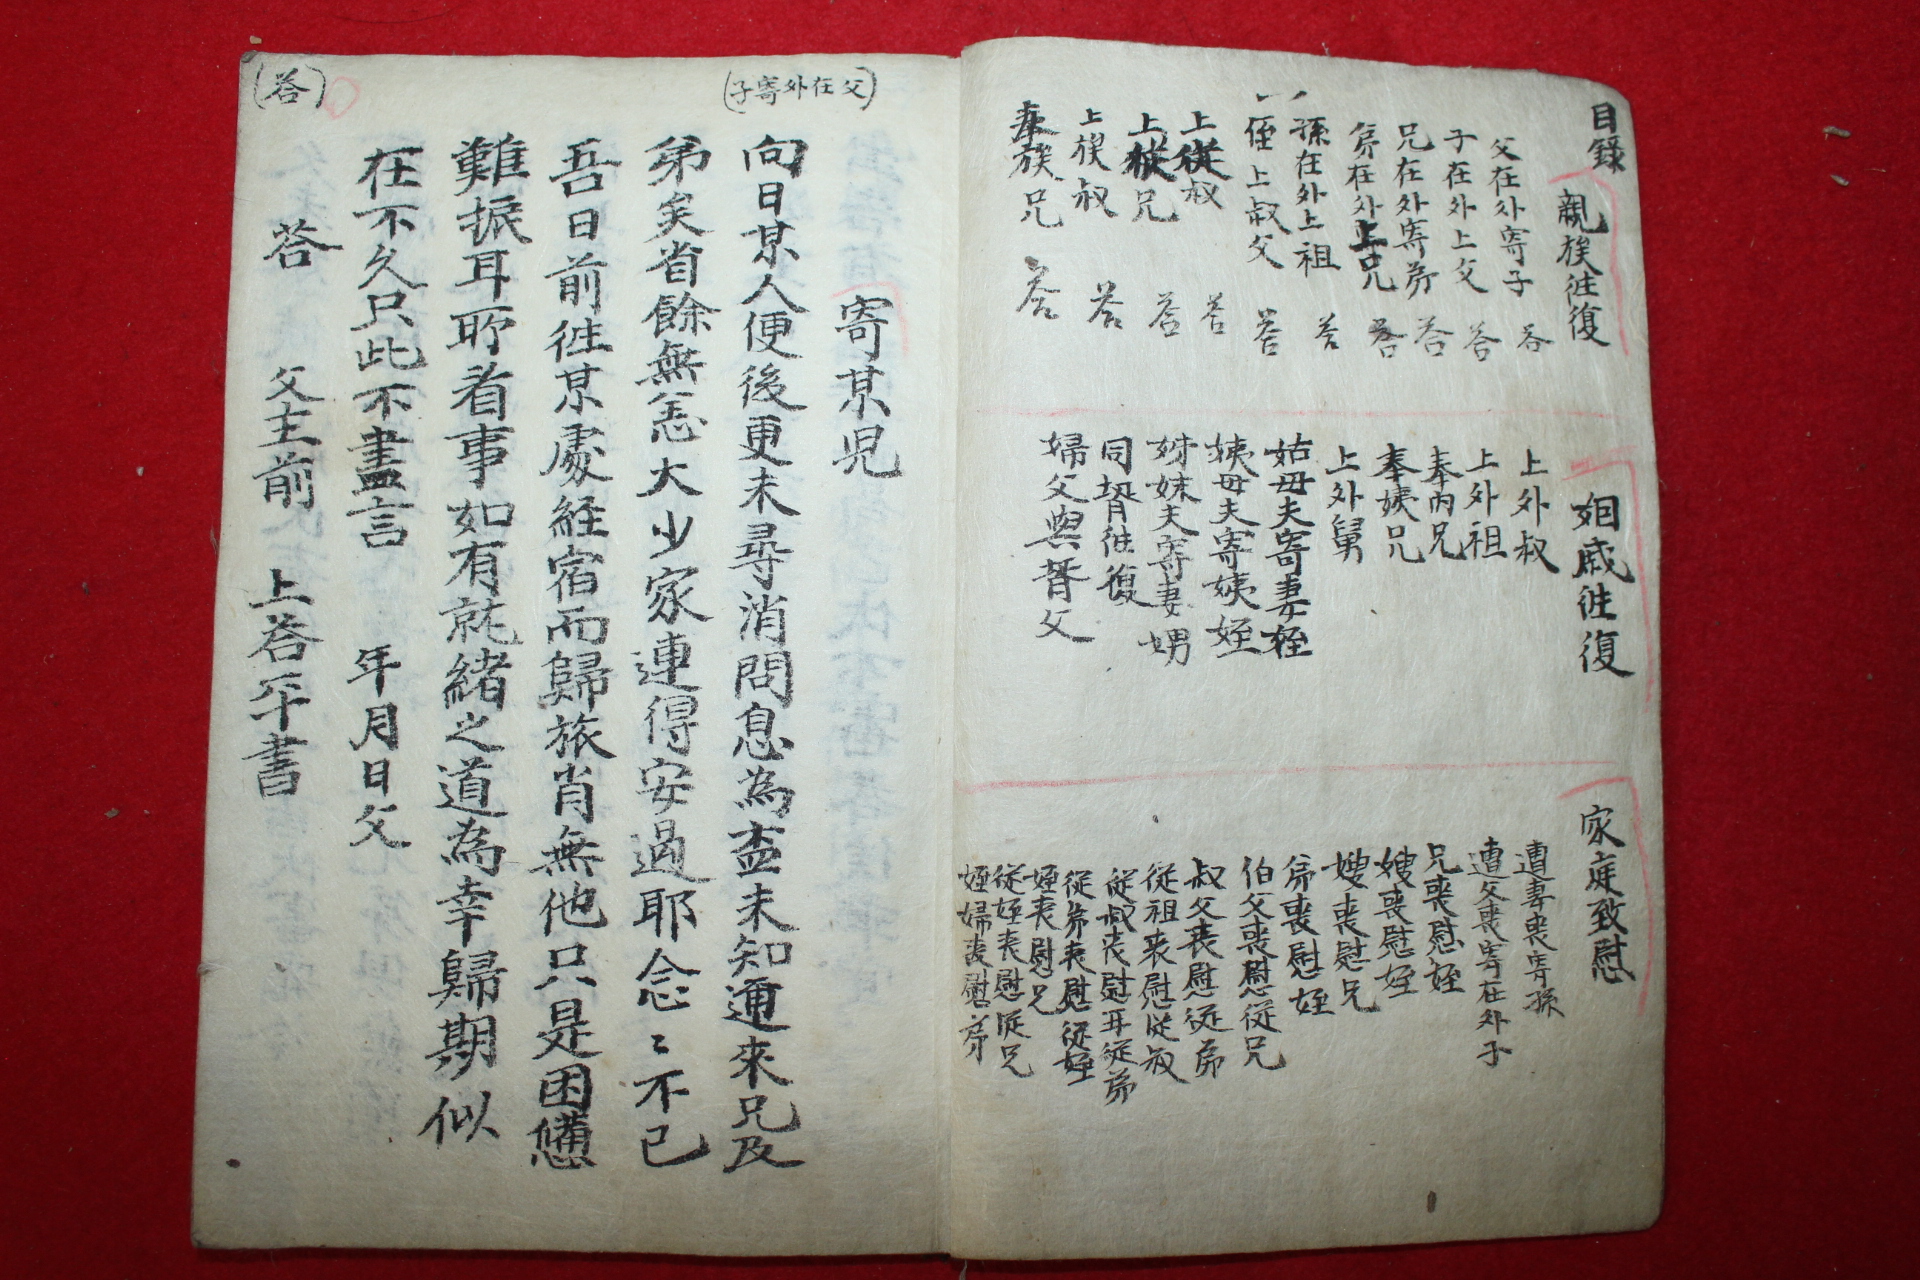 目錄
親族往復
父在外寄子 答
子在外上父 答
兄在外寄弟 答
弟在外上兄 答
孫在外上祖 答
侄上叔父 答
上從叔 答
上從兄 答
上族叔 答
奉族兄 答
姻戚往復
上外叔
上外祖
奉內兄
奉姨兄
上外舅
姑母夫寄妻姪
姨母夫寄姨姪
姊妹夫寄妻娚
同壻往復
婦父與壻父
家庭致慰
遭妻喪寄孫
遭父喪寄在外子
兄喪慰姪
嫂喪慰姪
嫂喪慰兄
弟喪慰姪
伯父喪慰從兄
叔父喪慰從弟
從祖喪慰從叔
從叔喪慰再從弟
從弟喪慰從姪
姪喪慰兄
從姪喪慰從兄
姪婦喪慰弟
(父在外寄子)
寄某児
向日某人便後更未尋消問息為盃未知邇來兄及
弟矣省餘無恙大少家連得安過耶念〻不已
吾日前往某處経宿而歸旅肖無他只是困憊
難振耳所着事如有就緒之道為幸歸期似
在不久只此不盡言 年月日父
(答)
答 父主前 上答平書